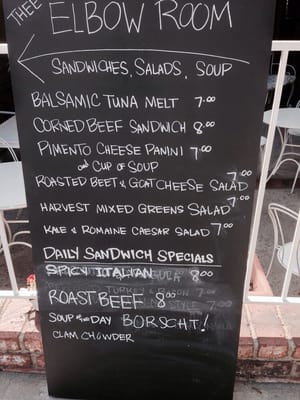 THEE
ELBOW ROOM
SANDWICHES, SALADS, SOUP
BALSAMIC TUNA MELT 7.00
CORNED BEEF SANDWICH 8.00
PIMENTO CHEESE PANINI 7.00
and CUP OF SOUP
ROASTED BEET & GOAT CHEESE SALAD 7.00
HARVEST MIXED GREENS SALAD 7.00
KALE & ROMAINE CAESAR SALAD 7.00
DAILY SANDWICH SPECIALS
SPICY ITALIAN 8.00
ROAST BEEF 8.00
SOUP of the DAY BORSCHT!
CLAM CHOWDER